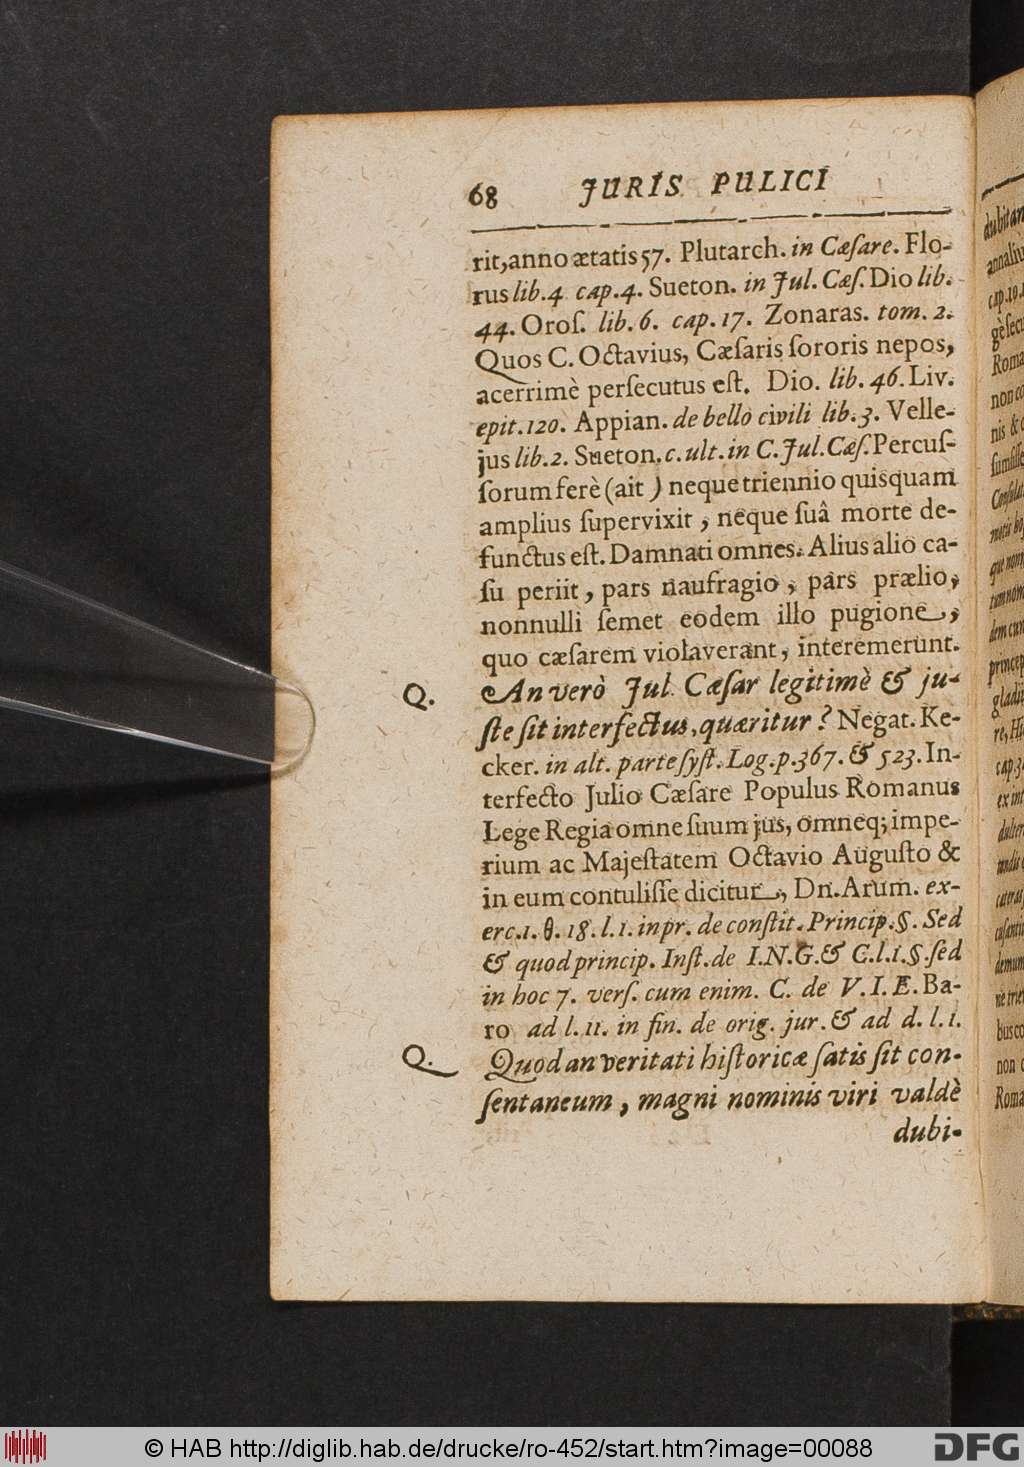 68 JURIS PULICI
rit, anno ætatis 57. Plutarch. in Cæſare. Flo-
rus lib. 4 cap. 4. Sueton. in Jul. Cæſ. Dio lib.
44. Oroſ. lib. 6. cap. 17. Zonaras. tom. 2.
Quos C. Octavius, Cæſaris ſororis nepos,
acerrimè perſecutus eſt. Dio. lib. 46. Liv.
epit. 120. Appian. de bello civili lib. 3. Velle-
jus lib. 2. Sueton. c. ult. in C. Jul. Cæſ. Percuſ-
ſorum ferè (ait) neque triennio quisquam
amplius ſupervixit, neque ſuâ morte de-
functus eſt. Damnati omnes. Alius alio ca-
ſu periit, pars naufragio, pars prælio,
nonnulli ſemet eodem illo pugione,
quo cæſarem violaverant, interemerunt.
Q. An verò Jul. Cæſar legitimè & ju-
ſte ſit interfectus, quæritur? Negat. Ke-
cker. in alt. parte ſyſt. Log. p. 367. & 523. In-
terfecto Julio Cæſare Populus Romanus
Lege Regia omne ſuum jus, omneq; impe-
rium ac Majeſtatem Octavio Auguſto &
in eum contuliſſe dicitur, Dn. Arum. ex-
erc. 1. θ. 18. l. 1. in pr. de conſtit. Princip. §. Sed
& quod princip. Inſt. de I. N. G. & C. l. 1. §. ſed
in hoc 7. verſ. cum enim. C. de V. I. E. Ba-
ro ad l. 11. in fin. de orig. jur. & ad d. l. 1.
Q. Quod an veritati hiſtoricæ ſatis ſit con-
ſentaneum, magni nominis viri valdè
dubi-
dubitan
annaliu
cap. 19.
Roma
non co
nis &
Conſulat
dem cum
princep
re, Hi
cap. 3
ex int
demum
busco
non
Roma
© HAB http://diglib.hab.de/drucke/ro-452/start.htm?image=00088
DFG